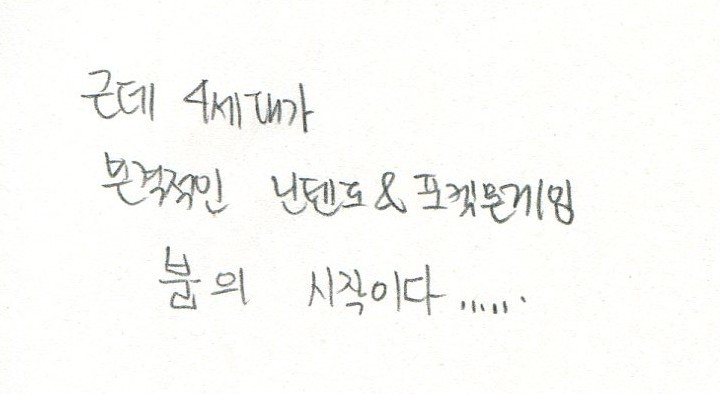 근데 4세대가
본격적인 닌텐도&포켓몬게임
붐의 시작이다......